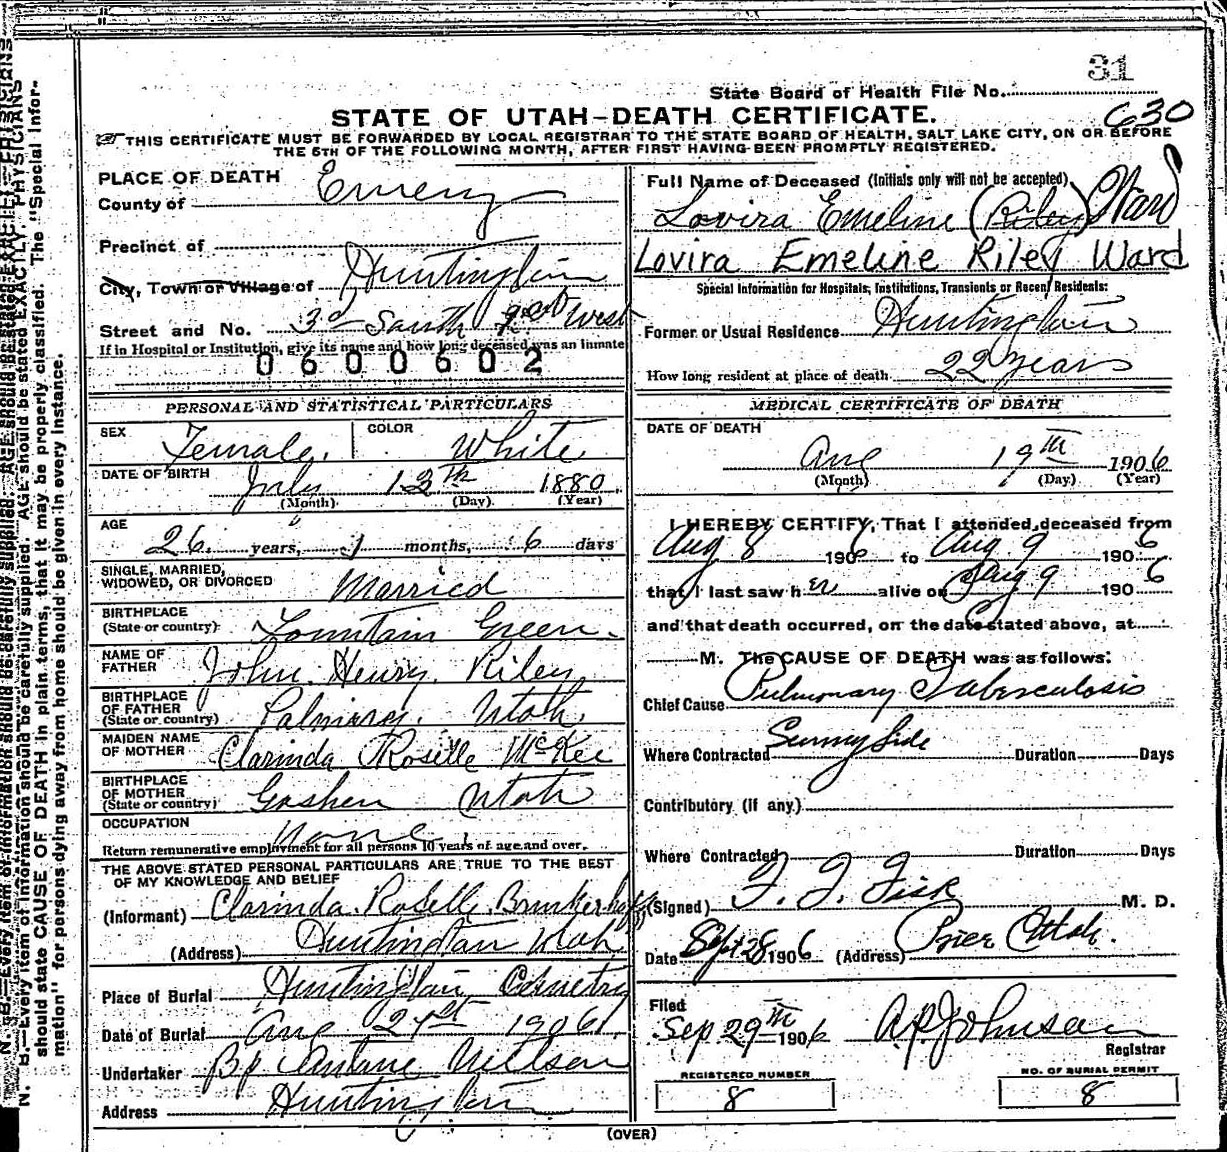 31
State Board of Health File No.
630
STATE OF UTAH-DEATH CERTIFICATE.
THIS CERTIFICATE MUST BE FORWARDED BY LOCAL REGISTRAR TO THE STATE BOARD OF HEALTH, SALT LAKE CITY, ON OR BEFORE
THE 5TH OF THE FOLLOWING MONTH, AFTER FIRST HAVING BEEN PROMPTLY REGISTERED.
PLACE OF DEATH
County of Emery
Precinct of
City, Town or Village of Huntington
Street and No. 3d South West
If in Hospital or Institution, give its name and how long deceased was an inmate
0600602
Full Name of Deceased (Initials only will not be accepted)
Lovira Emeline (Riley) Ward
Lovira Emeline Riley Ward
Special Information for Hospitals, Institutions, Transients or Recent Residents:
Former or Usual Residence Huntington
How long resident at place of death. 22 years
PERSONAL AND STATISTICAL PARTICULARS
SEX Female. COLOR White
DATE OF BIRTH July 13th 1880
(Month) (Day) (Year)
AGE
26 years, 1 months, 6 days
SINGLE, MARRIED,
WIDOWED, OR DIVORCED Married
BIRTHPLACE
(State or country) Fountain Green.
NAME OF
FATHER John Henry Riley
BIRTHPLACE
OF FATHER
(State or country) Palmira, Utah.
MAIDEN NAME
OF MOTHER Clarinda Roselle McKee
BIRTHPLACE
OF MOTHER
(State or country) Goshen Utah
OCCUPATION None
Return remunerative employment for all persons 10 years of age and over.
THE ABOVE STATED PERSONAL PARTICULARS ARE TRUE TO THE BEST
OF MY KNOWLEDGE AND BELIEF
(Informant) Clarinda Roselle Brinkerhoff
(Address) Huntington Utah
Place of Burial Huntington Cemetry
Date of Burial Aug 21st 1906
Undertaker Bp Antone Neilson
Address Huntington
MEDICAL CERTIFICATE OF DEATH
DATE OF DEATH
Aug 19th 1906
(Month) (Day) (Year)
I HEREBY CERTIFY, That I attended deceased from
Aug 8 1906 to Aug 9 1906
that I last saw her alive on Aug 9 1906
and that death occurred, on the date stated above, at
M. The CAUSE OF DEATH was as follows:
Chief Cause Pulmonary Tuberculosis
Where Contracted Sunny Side Duration Days
Contributory (if any)
Where Contracted Duration Days
(Signed) F. F. Fisk M. D.
Date Sept 28 1906 (Address) Price Utah.
Filed
Sep 29th 1906 A P Johnson
Registrar
REGISTERED NUMBER
8
NO. OF BURIAL PERMIT
8
(OVER)
N. B.—Every item of information should be carefully supplied. AGE should be stated EXACTLY. PHYSICIANS
should state CAUSE OF DEATH in plain terms, that it may be properly classified. The "Special Infor-
mation" for persons dying away from home should be given in every instance.